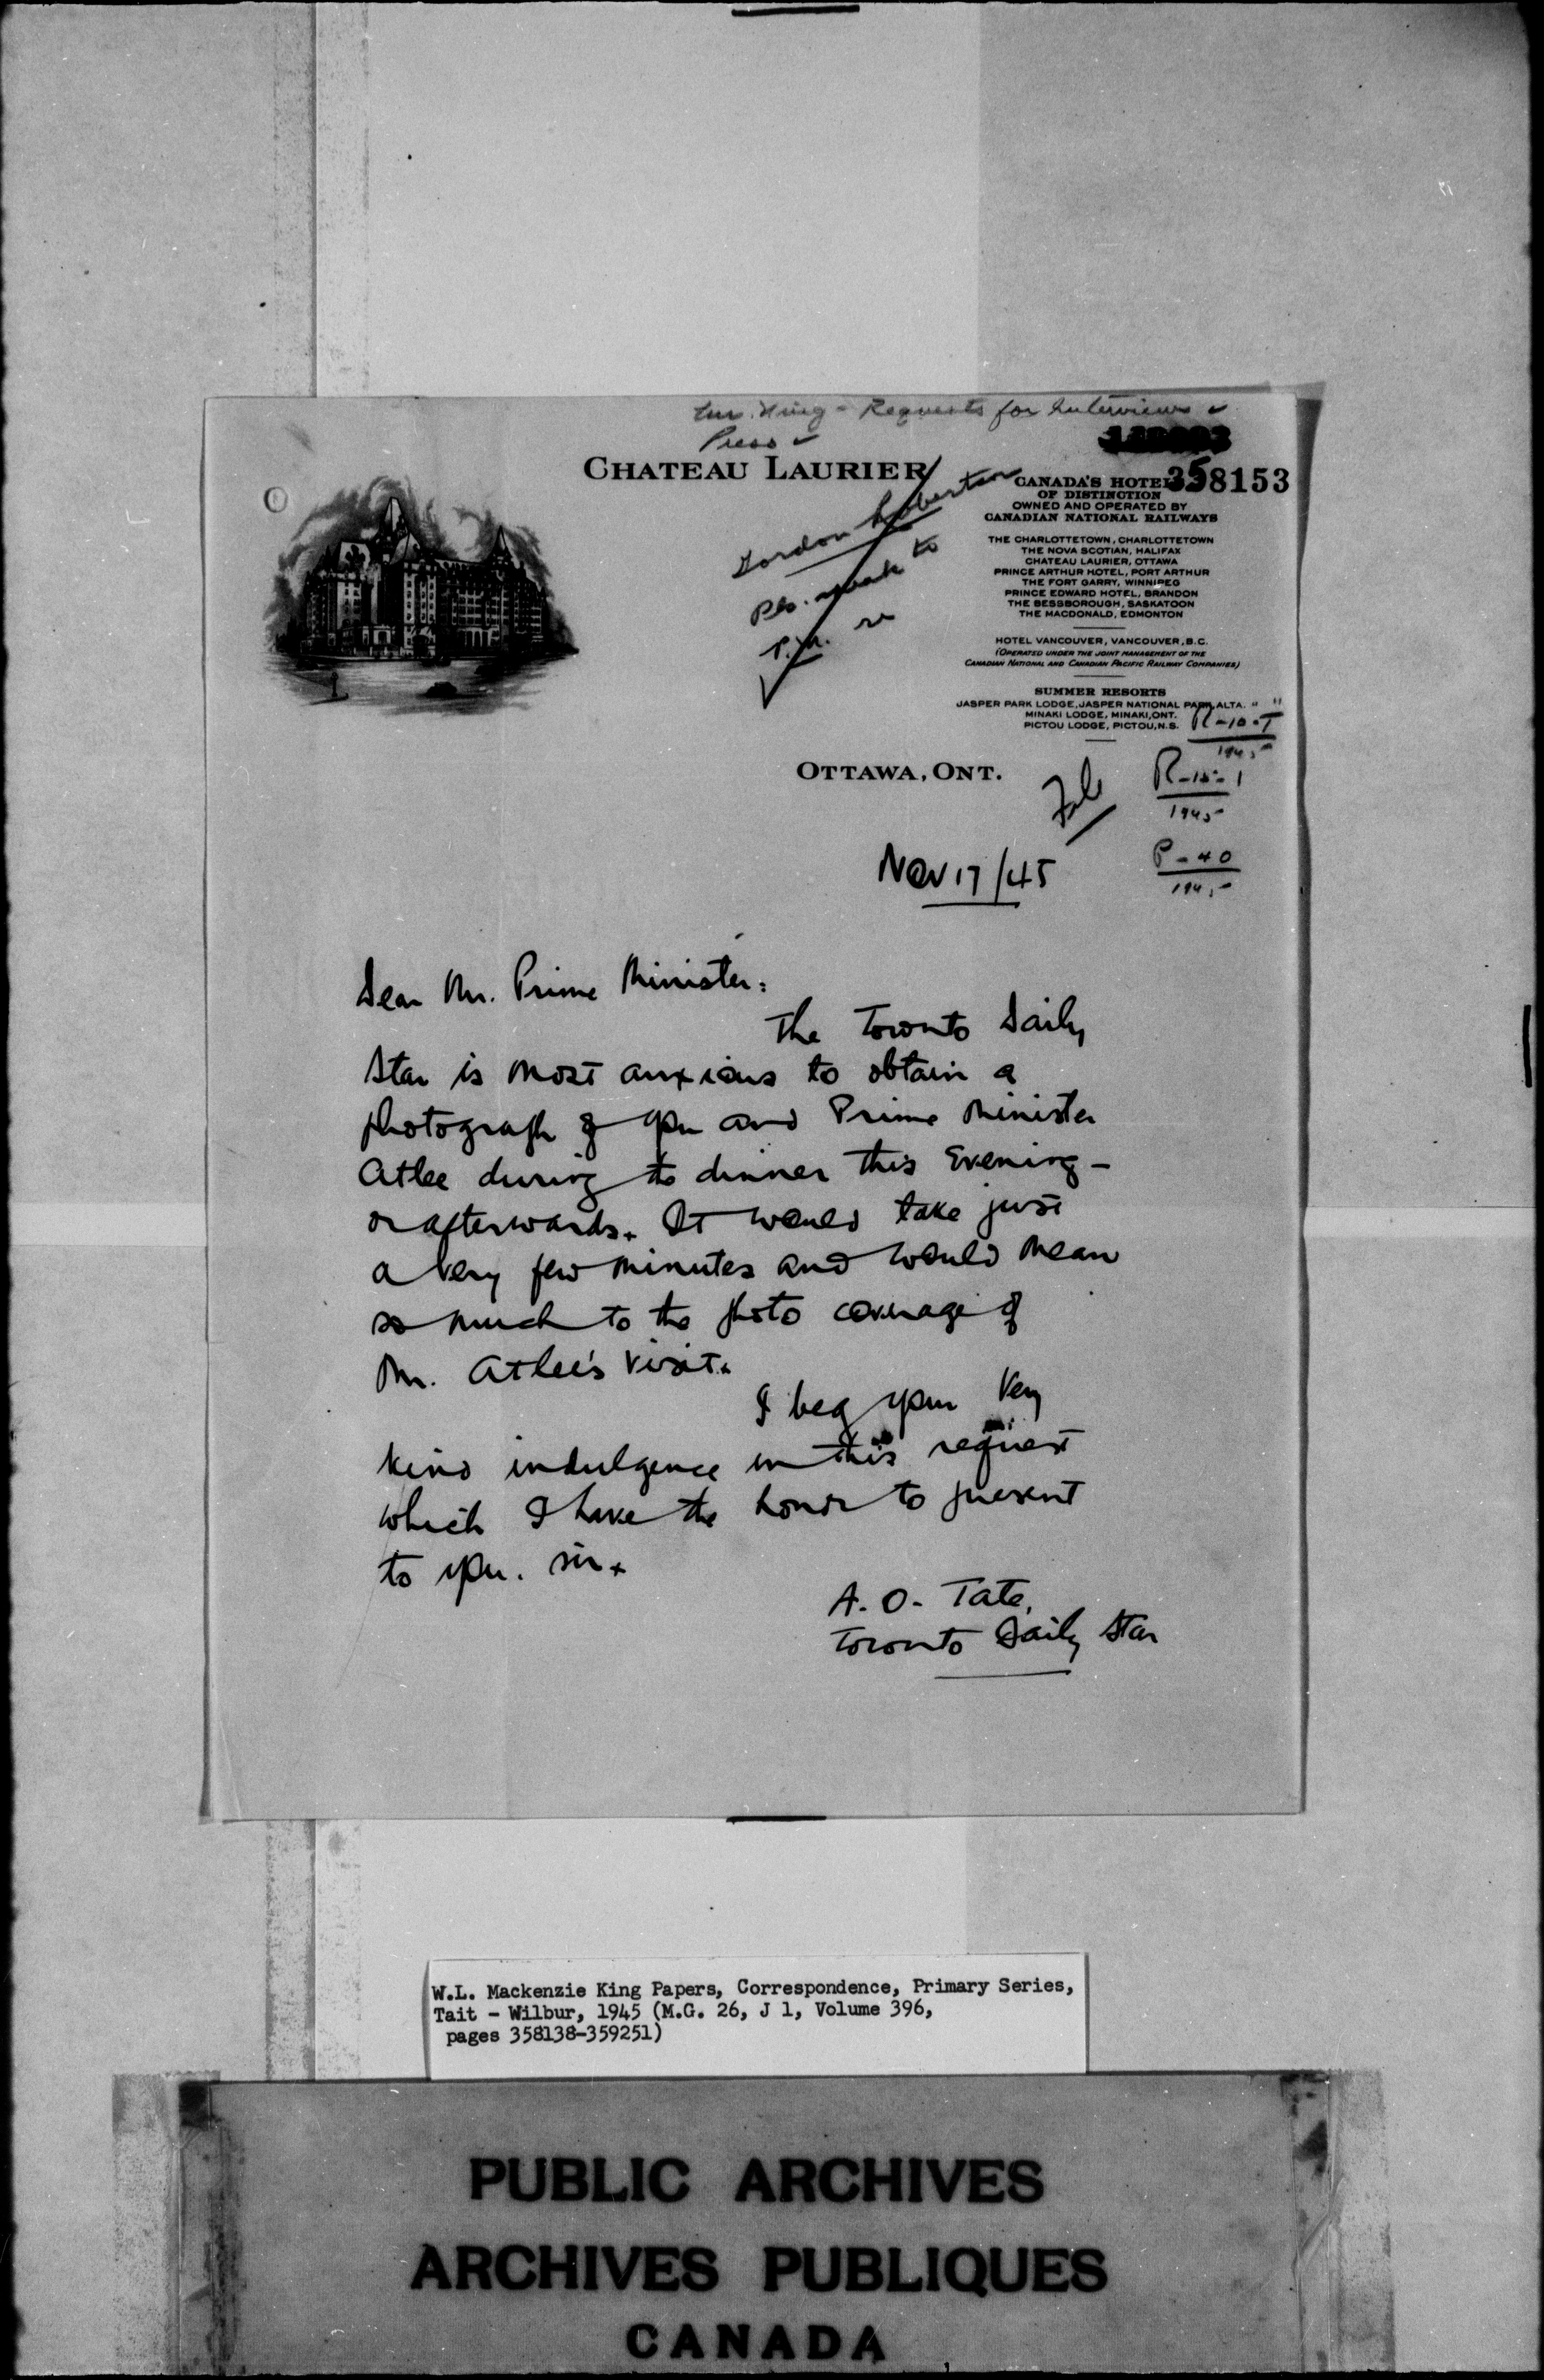 Requests for Interviews
Press
CHATEAU LAURIER
358153
CANADA'S HOTELS
OF DISTINCTION
OWNED AND OPERATED BY
CANADIAN NATIONAL RAILWAYS
THE CHARLOTTETOWN, CHARLOTTETOWN
THE NOVA SCOTIAN, HALIFAX
CHATEAU LAURIER, OTTAWA
PRINCE ARTHUR HOTEL, PORT ARTHUR
THE FORT GARRY, WINNIPEG
PRINCE EDWARD HOTEL, BRANDON
THE BESSBOROUGH, SASKATOON
THE MACDONALD, EDMONTON
HOTEL VANCOUVER, VANCOUVER, B.C.
(OPERATED UNDER THE JOINT MANAGEMENT OF THE
CANADIAN NATIONAL AND CANADIAN PACIFIC RAILWAY COMPANIES)
SUMMER RESORTS
JASPER PARK LODGE, JASPER NATIONAL PARK, ALTA.
MINAKI LODGE, MINAKI, ONT.
PICTOU LODGE, PICTOU, N.S.
Gordon Robertson
Pls. speak to
P.M. re
R-10-T
1945
OTTAWA, ONT.
File
1945
P-40
1945
Nov 17/45
Dear Mr. Prime Minister:
The Toronto Daily
Star is most anxious to obtain a
photograph of you and Prime Minister
Atlee during the dinner this evening -
or afterwards. It would take just
a very few minutes and would mean
so much to the photo coverage of
Mr. Atlee's visit.
I beg your very
kind indulgence in this request
which I have the honor to present
to you. sir.
A. O. Tate,
Toronto Daily Star
W.L. Mackenzie King Papers, Correspondence, Primary Series,
Tait - Wilbur, 1945 (M.G. 26, J 1, Volume 396,
pages 358138-359251)
PUBLIC ARCHIVES
ARCHIVES PUBLIQUES
CANADA